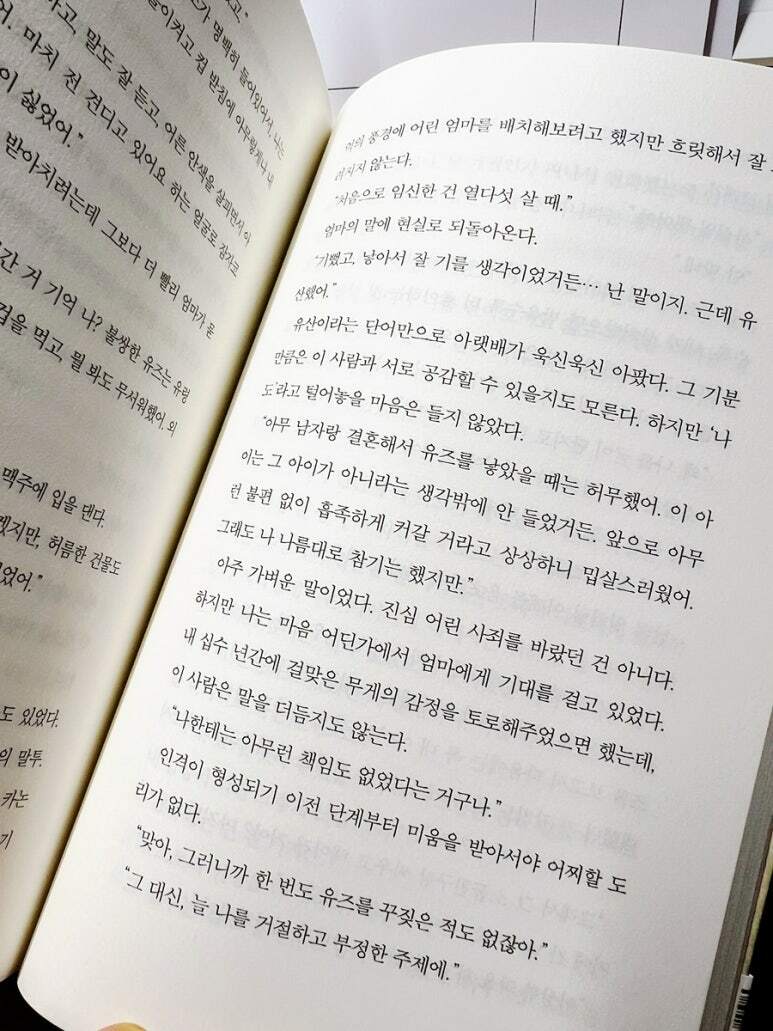 명백히 들어있어서, 나는
들이켜고 컵 받침에 아무렇게나 내
말도 잘 듣고, 어른 안색을 살피면서 이
마치 전 견디고 있어요 하는 얼굴로 잠자코
이 싫었어."
받아치려는데 그보다 더 빨리 엄마가 묻
간 거 기억 나? 불쌍한 유즈는 유령
겁을 먹고, 뭘 봐도 무서워했어. 외
맥주에 입을 댄다.
겠지만, 허름한 건물도
었어."
도 있었다.
의 말투.
카논
기
풍경에 어린 엄마를 배치해보려고 했지만 흐릿해서 잘
려지지 않는다.
"처음으로 임신한 건 열다섯 살 때."
엄마의 말에 현실로 되돌아온다.
"기뻤고, 낳아서 잘 기를 생각이었거든… 난 말이지. 근데 유
산했어."
유산이라는 단어만으로 아랫배가 욱신욱신 아팠다. 그 기분
만큼은 이 사람과 서로 공감할 수 있을지도 모른다. 하지만 '나
도'라고 털어놓을 마음은 들지 않았다.
"아무 남자랑 결혼해서 유즈를 낳았을 때는 허무했어. 이 아
이는 그 아이가 아니라는 생각밖에 안 들었거든. 앞으로 아무
런 불편 없이 흡족하게 커갈 거라고 상상하니 밉살스러웠어.
그래도 나 나름대로 참기는 했지만."
아주 가벼운 말이었다. 진심 어린 사죄를 바랐던 건 아니다.
하지만 나는 마음 어딘가에서 엄마에게 기대를 걸고 있었다.
내 십수 년간에 걸맞은 무게의 감정을 토로해주었으면 했는데,
이 사람은 말을 더듬지도 않는다.
"나한테는 아무런 책임도 없었다는 거구나."
인격이 형성되기 이전 단계부터 미움을 받아서야 어찌할 도
리가 없다.
"맞아, 그러니까 한 번도 유즈를 꾸짖은 적도 없잖아."
"그 대신, 늘 나를 거절하고 부정한 주제에."